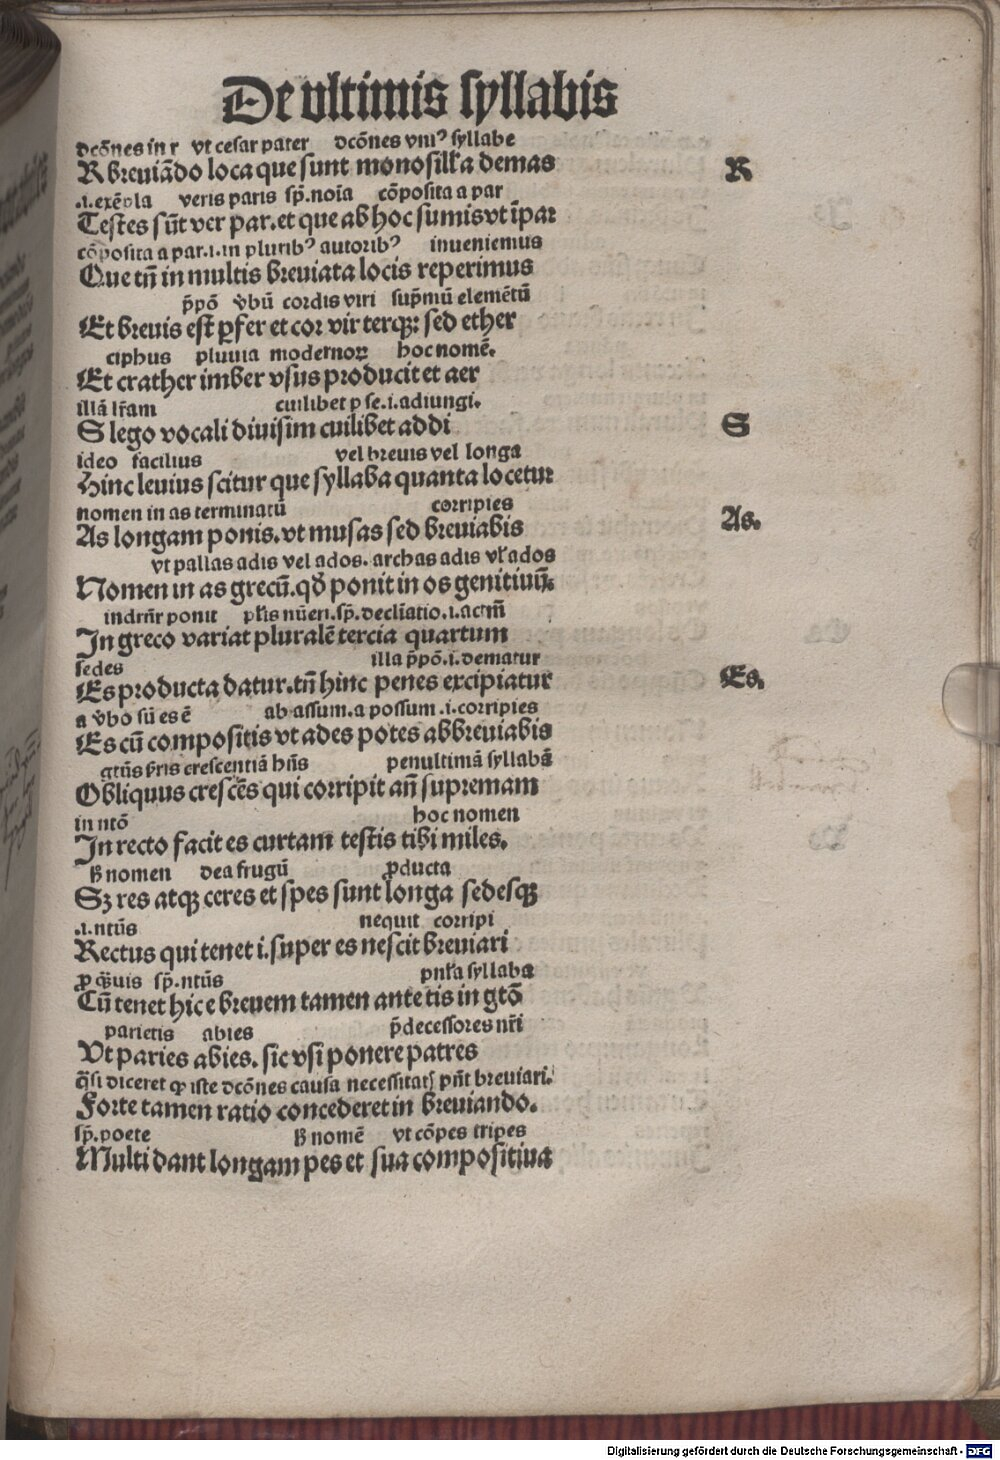 De vltimis syllabis
dcões in r vt cesar pater dcões vniꝰ syllabe
R breuiãdo loca que sunt monosill'a demas
R
.i. exẽpla veris paris sp̃. noĩa cõposita a par
Testes sũt ver par. et que ab hoc sumis vt ĩpar
cõposita a par .i. in pluribꝰ autoribꝰ inueniemus
Que tñ in multis breuiata locis reperimus
p̃põ v̾bũ cordis viri sup̃mũ elemẽtũ
Et breuis est ꝑfer et cor vir terqꝫ: sed ether
ciphus pluuia modernoꝝ hoc nomẽ.
Et crather imber vsus producit et aer
illã lr̃am cuilibet p se .i. adiungi.
S lego vocali diuisim cuilibet addi
S
ideo facilius vel breuis vel longa
Hinc leuius scitur que syllaba quanta locetur
nomen in as terminatũ corripies
As longam ponis. vt musas sed breuiabis
As.
vt pallas adis vel ados. archas adis vl' ados
Nomen in as grecũ. qd̾ ponit in os genitiuũ.
indr̃nr̃ ponit pl'is nũeri. sp̃. declĩatio .i. actm̃
In greco variat pluralẽ tercia quartum
sedes illa p̃põ. i. dematur
Es producta datur. tñ hinc penes excipiatur
Es.
a v̾bo sũ es ẽ ab assum. a possum .i. corripies
Es cũ compositis vt ades potes abbreuiabis
gtũs sr̃is crescentiã hñs penultimã syllabã
Obliquus crescẽs qui corripit añ supremam
in ntõ hoc nomen
In recto facit es curtam testis tibi miles.
ß nomen dea frugũ ꝓducta
Sꝫ res atqꝫ ceres et spes sunt longa sedesqꝫ
.i. ntũs nequit corripi
Rectus qui tenet i. super es nescit breuiari
ꝓ q̃uis sp̃. ntũs pnl'a syllaba
Cũ tenet hic e breuem tamen ante tis in gtõ
parietis abies p̃decessores nr̃i
Vt paries abies. sic vsi ponere patres
q̃si diceret ꝙ iste dcões causa necessitatꝭ pñt breuiari.
Forte tamen ratio concederet in breuiando.
sp̃. poete ß nomẽ vt cõpes tripes
Multi dant longam pes et sua compositiua
Digitalisierung gefördert durch die Deutsche Forschungsgemeinschaft - DFG